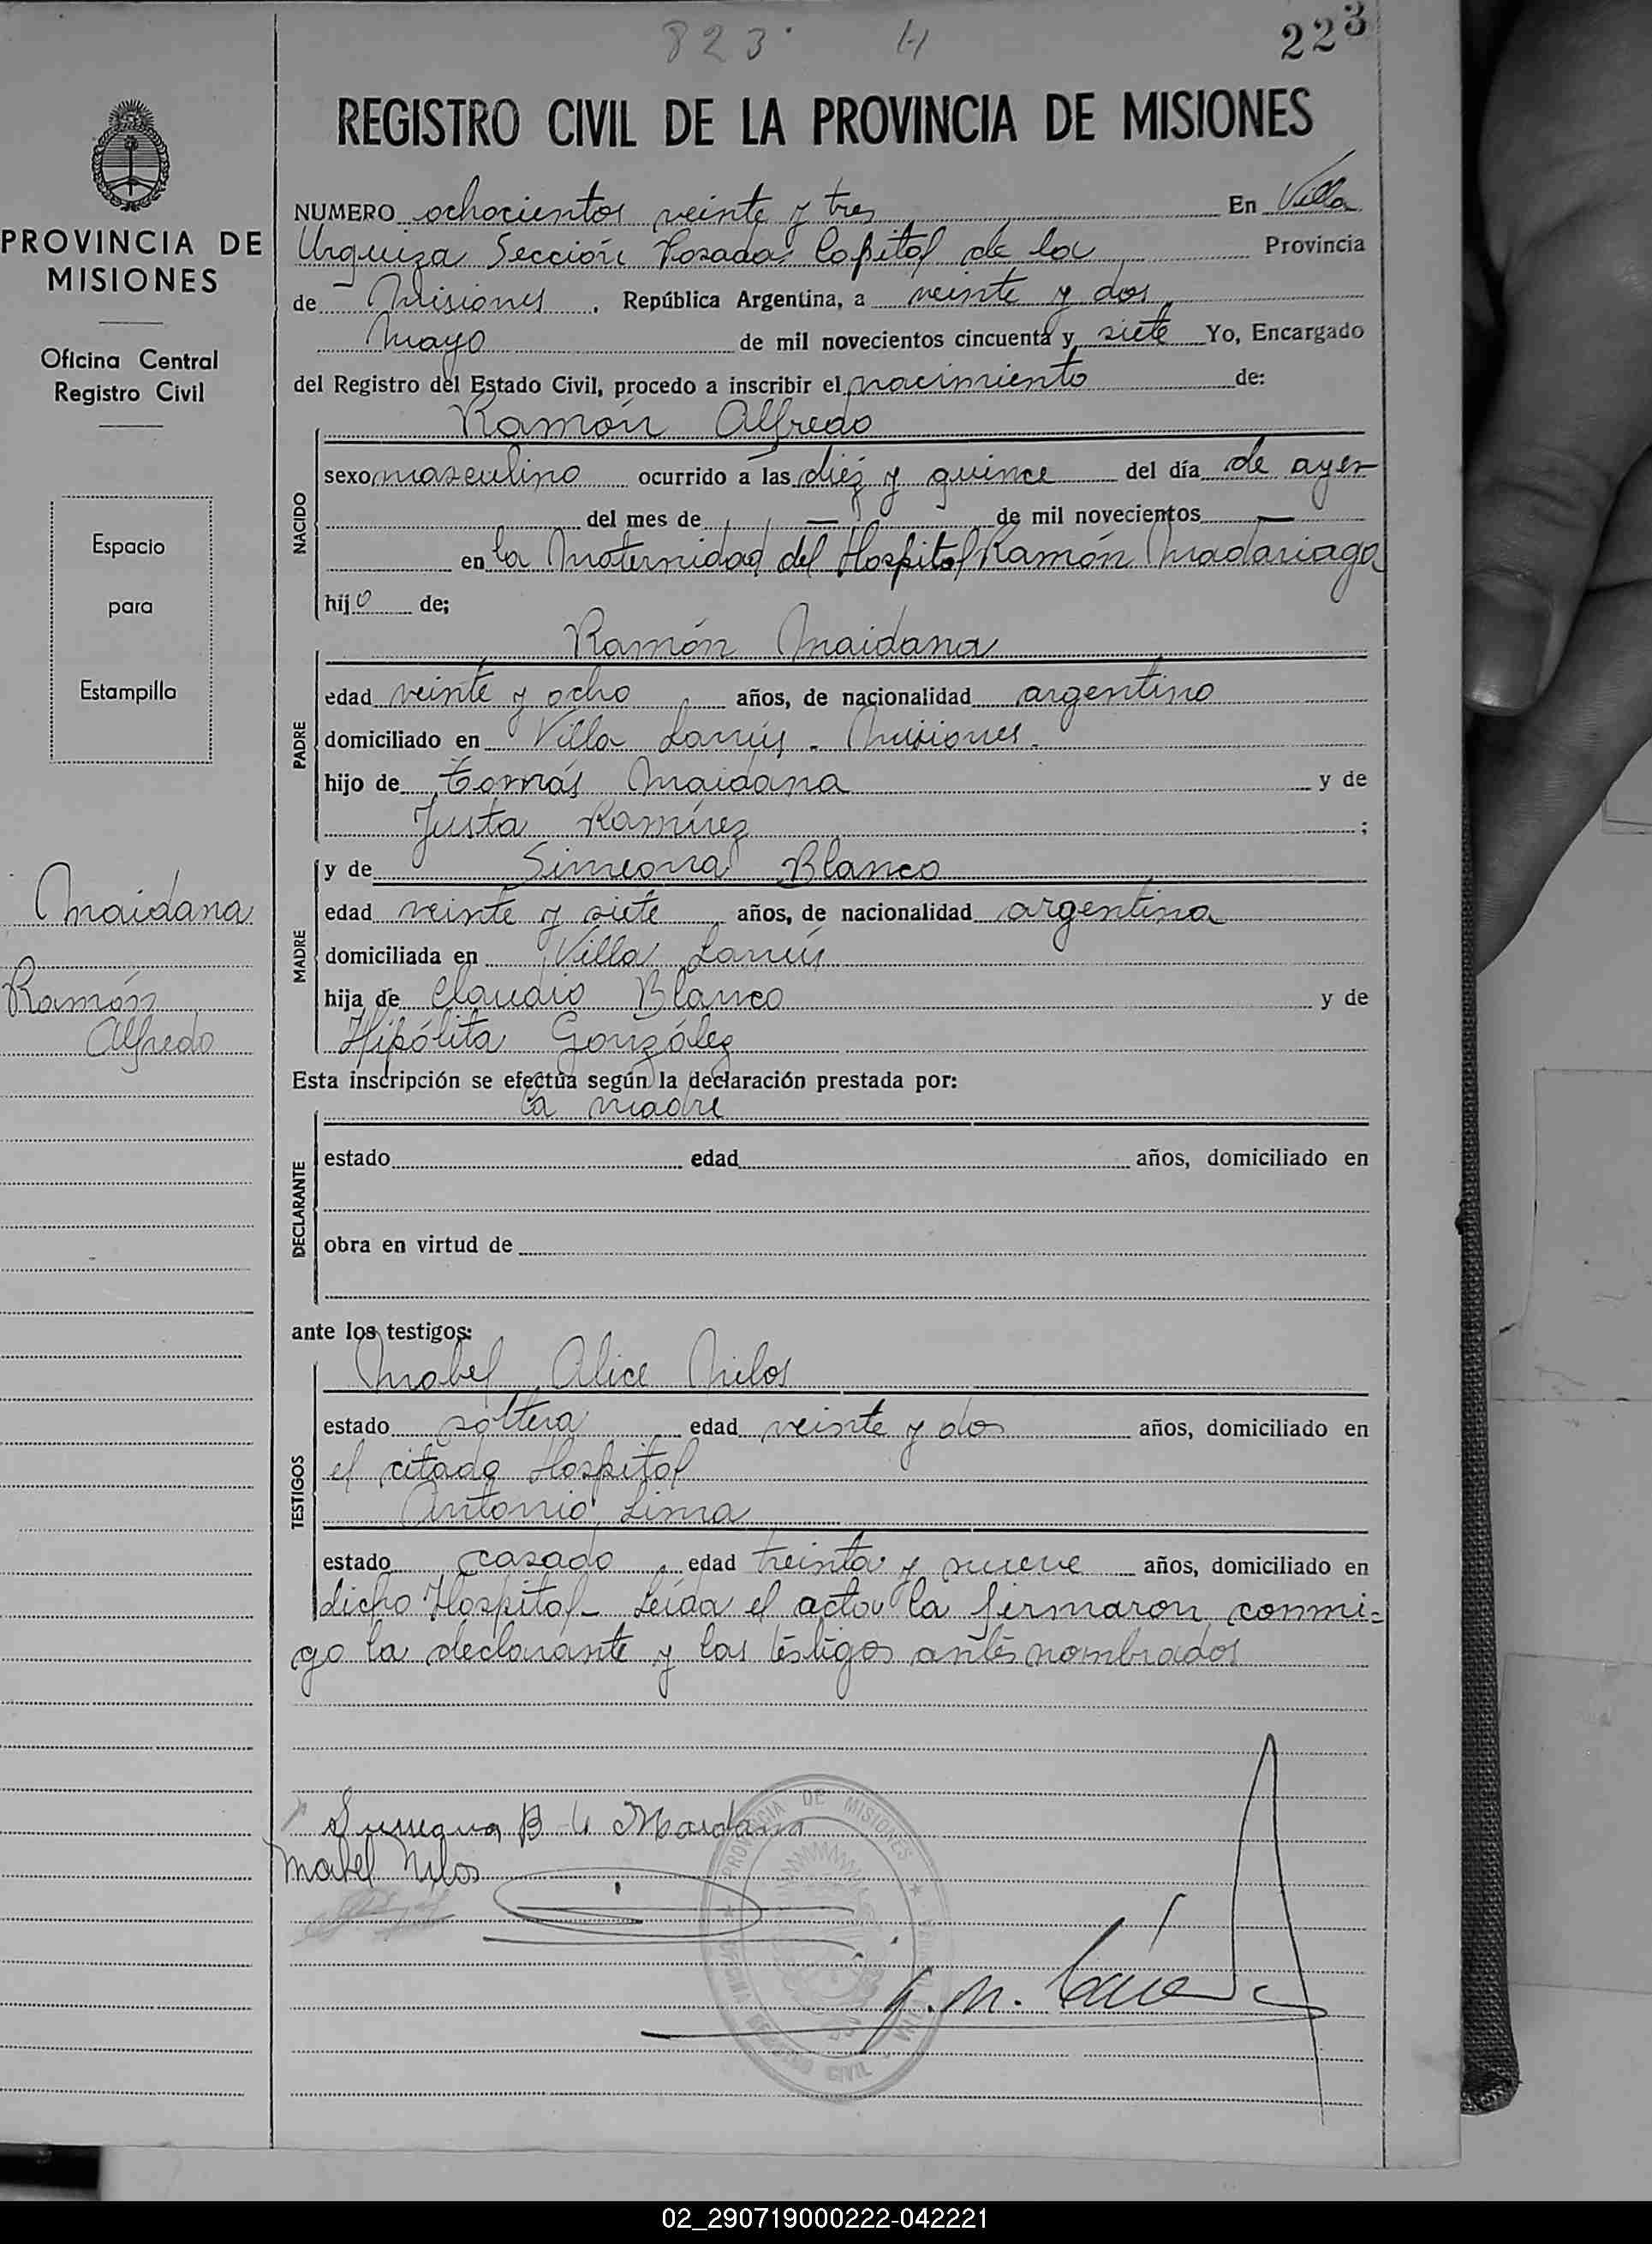 823 H
223
REGISTRO CIVIL DE LA PROVINCIA DE MISIONES
PROVINCIA DE
MISIONES
Oficina Central
Registro Civil
Espacio
para
Estampilla
Maidana
Ramón
Alfredo
NUMERO ochocientos veinte y tres En Villa
Urquiza Sección Posadas Capital de la Provincia
de Misiones. República Argentina, a veinte y dos
Mayo de mil novecientos cincuenta y siete Yo, Encargado
del Registro del Estado Civil, procedo a inscribir el nacimiento de:
NACIDO
Ramón Alfredo
sexo masculino ocurrido a las diéz y quince del día de ayer
del mes de — de mil novecientos —
en la Maternidad del Hospital Ramón Madariaga
hijo de;
PADRE
Ramón Maidana
edad veinte y ocho años, de nacionalidad argentino
domiciliado en Villa Lanús - Misiones.
hijo de Tomás Maidana y de
Justa Ramírez ;
MADRE
y de Simeona Blanco
edad veinte y siete años, de nacionalidad argentina
domiciliada en Villa Lanús
hija de Claudio Blanco y de
Hipólita González
Esta inscripción se efectúa según la declaración prestada por:
DECLARANTE
la madre
estado edad años, domiciliado en
obra en virtud de
ante los testigos:
TESTIGOS
Mabel Alice Nilos
estado soltera edad veinte y dos años, domiciliado en
el citado Hospital
Antonio Lima
estado casado edad treinta y nueve años, domiciliado en
dicho Hospital - Leída el acta la firmaron conmi=
go la declarante y los testigos antes nombrados
B de Maidana
Mabel Nilos
PROVINCIA DE MISIONES
REGISTRO CIVIL
02_290719000222-042221